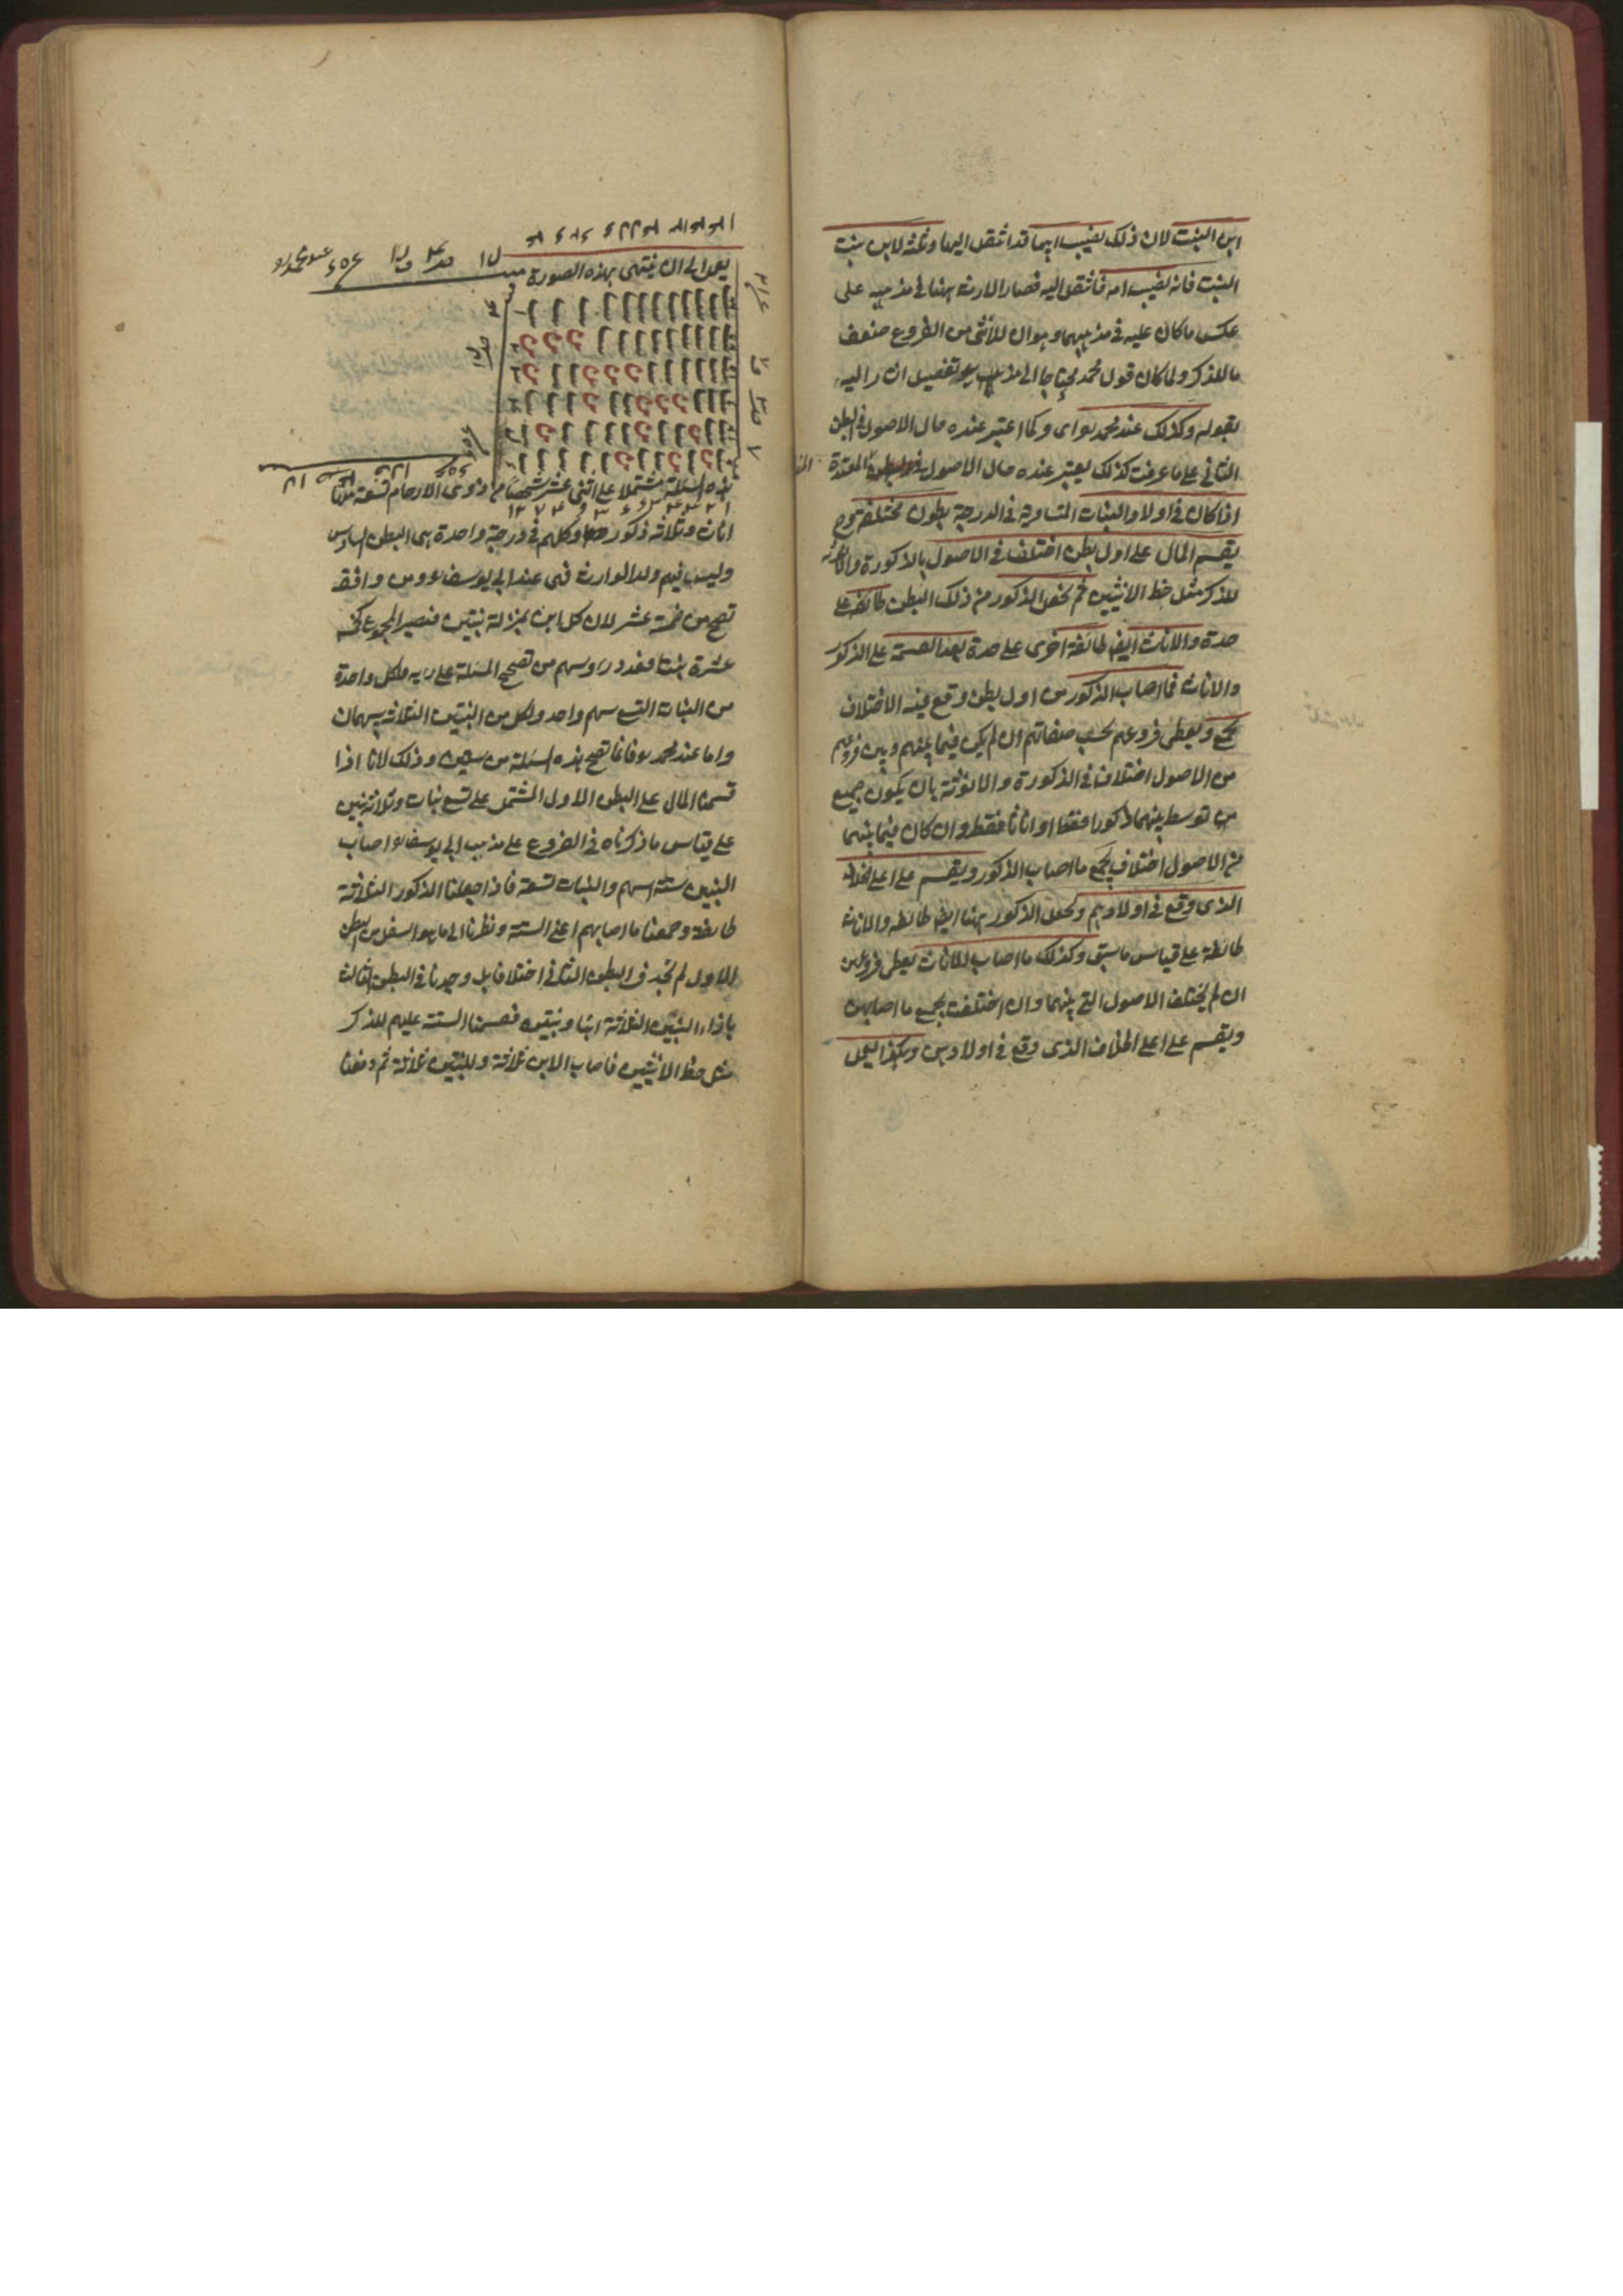 ابن البنت لان ذلك نصيب ابيها قد انتقل اليها وثلثه لابن بنت
البنت فانه نصيب امه فانتقل اليه فصار الارث ههنا في مذهبه على
عكس ما كان عليه في مذهبهما وهو ان للأنثى من الفروع ضعف
ما للذكر ولما كان قول محمد محتاجا الى تفصيل اشار اليه
بقوله وكذلك عند محمد اى وكما اعتبر عنده حال الاصول في البطن
الثاني على ما عرفت كذلك يعتبر عنده حال الاصول في البطون المتعددة
اذا كان في اولاد البنات المتساوية في الدرجة بطون مختلفة
يقسم المال على اول بطن اختلف في الاصول بالذكورة والانوثة
للذكر مثل حظ الانثيين ثم يجعل الذكور من ذلك البطن طائفة على
حدة والاناث ايضا طائفة اخرى على حدة بعد القسمة على الذكور
والاناث فما اصاب الذكور من اول بطن وقع فيه الاختلاف
يجمع ويعطى فروعهم بحسب صفاتهم ان لم يكن فيما بينهم وبين فروعهم
من الاصول اختلاف في الذكورة والانوثة بان يكون جميع
من توسط بينهما ذكورا فقط او اناثا فقط وان كان فيما بينهما
من الاصول اختلاف يجمع ما اصاب الذكور ويقسم على اعلى الخلاف
الذى وقع في اولادهم ويجعل الذكور ههنا ايضا طائفة والاناث
طائفة على قياس ما سبق وكذلك ما اصاب للاناث يعطى فروعهن
ان لم يختلف الاصول التي بينهما وان اختلفت يجمع ما اصابهن
ويقسم على اعلى الخلاف الذى وقع في اولادهن وهكذا يعمل
يعمل الى ان ينتهى بهذه الصورة
هذه المسئلة مشتملة على اثنى عشر شخصا من ذوى الارحام تسعة منها
اناث وثلاثة ذكور وكلهم في درجة واحدة هى البطن السادس
وليس فيهم ولد الوارث فهى عند ابى يوسف ومن وافقه
تصح من خمسة عشر لان كل ابن بمنزلة بنتين فيصير المجموع كخمسة
عشرة بنتا فعدد رؤوسهم من تصحيح المسئلة على رايه فلكل واحدة
من البنات التسع سهم واحد ولكل من البنين الثلاثة سهمان
واما عند محمد فانما تصح هذه المسئلة من ستين وذلك لانا اذا
قسمنا المال على البطن الاول المشتمل على تسع بنات وثلاثة بنين
على قياس ما ذكرناه في الفروع على مذهب ابى يوسف اصاب
البنين ستة اسهم والبنات تسعة فاذا جعلنا الذكور الثلاثة
طائفة وجمعنا ما اصابهم اعنى الستة ونظرنا الى ما هو اسفل من البطن
الاول لم نجد في البطن الثاني اختلافا بل وجدنا في البطن الثالث
بازاء البنين الثلاثة ابنا وبنتين فقسمنا الستة عليهم للذكر
مثل حظ الانثيين فاصاب الابن ثلاثة وللبنتين ثلاثة ثم دفعنا